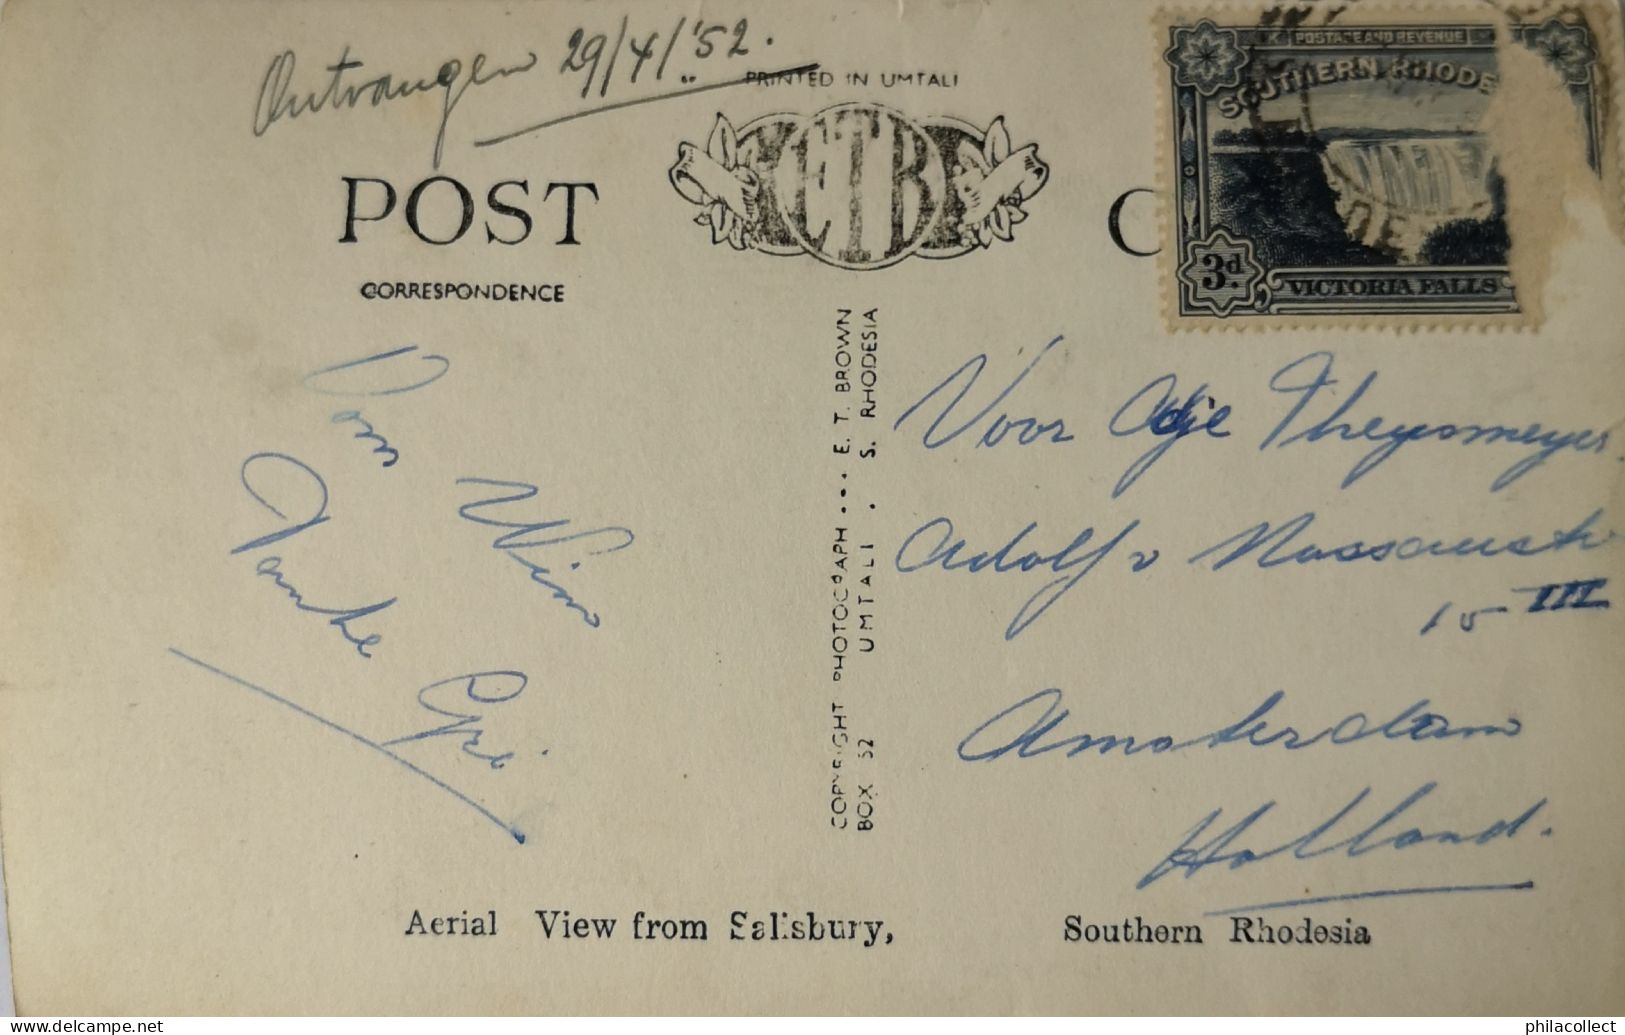 Ontvangen 29/4/'52.
PRINTED IN UMTALI
POSTAGE AND REVENUE
SOUTHERN RHODE
3d.
VICTORIA FALLS
POST C
ETB
CORRESPONDENCE
COPYRIGHT PHOTOGRAPH ... E. T. BROWN
BOX 52 UMTALI . S. RHODESIA
Oom Wim
Tante Gré
Voor Adje Theysmeyer
Adolf v Nassaustr
15 III
Amsterdam
Holland.
Aerial View from Salisbury, Southern Rhodesia
philacollect www.delcampe.net